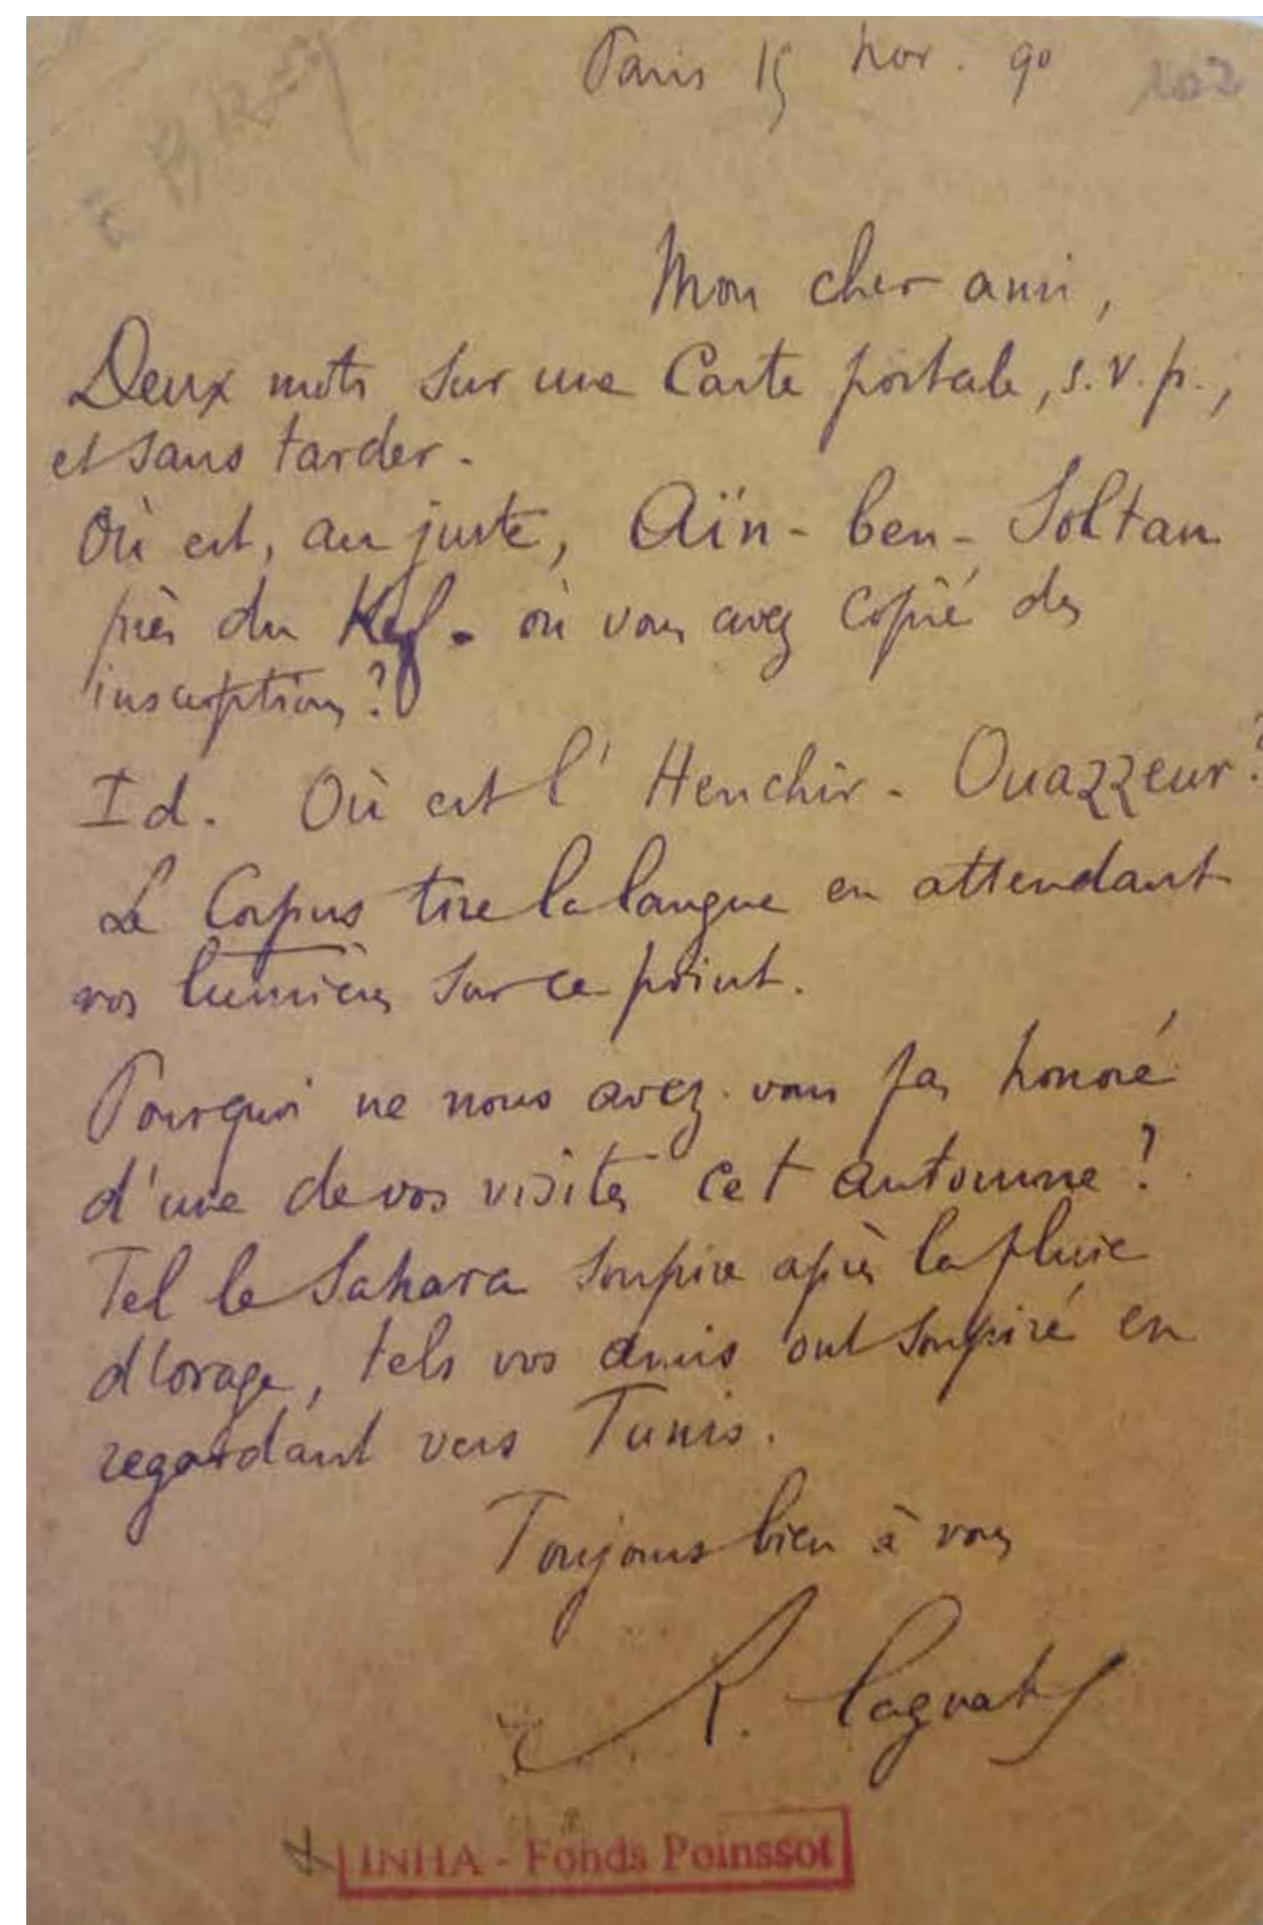 Paris 15 nov. 90
202
Mon cher ami,
Deux mots sur une Carte postale, s.v.p.,
et sans tarder.
Où est, au juste, Aïn-ben-Soltan
près du Kef - où vous avez copié des
inscriptions?
Id. Où est l'Henchir-Ouazzeur?
Le Corpus tire la langue en attendant
vos lumières sur ce point.
Pourquoi ne nous avez-vous pas honoré
d'une de vos visites cet automne?
Tel le Sahara soupire après la pluie
d'orage, tels vos amis ont soupiré en
regardant vers Tunis.
Toujours bien à vous
R. Cagnat
INHA - Fonds Poinssot